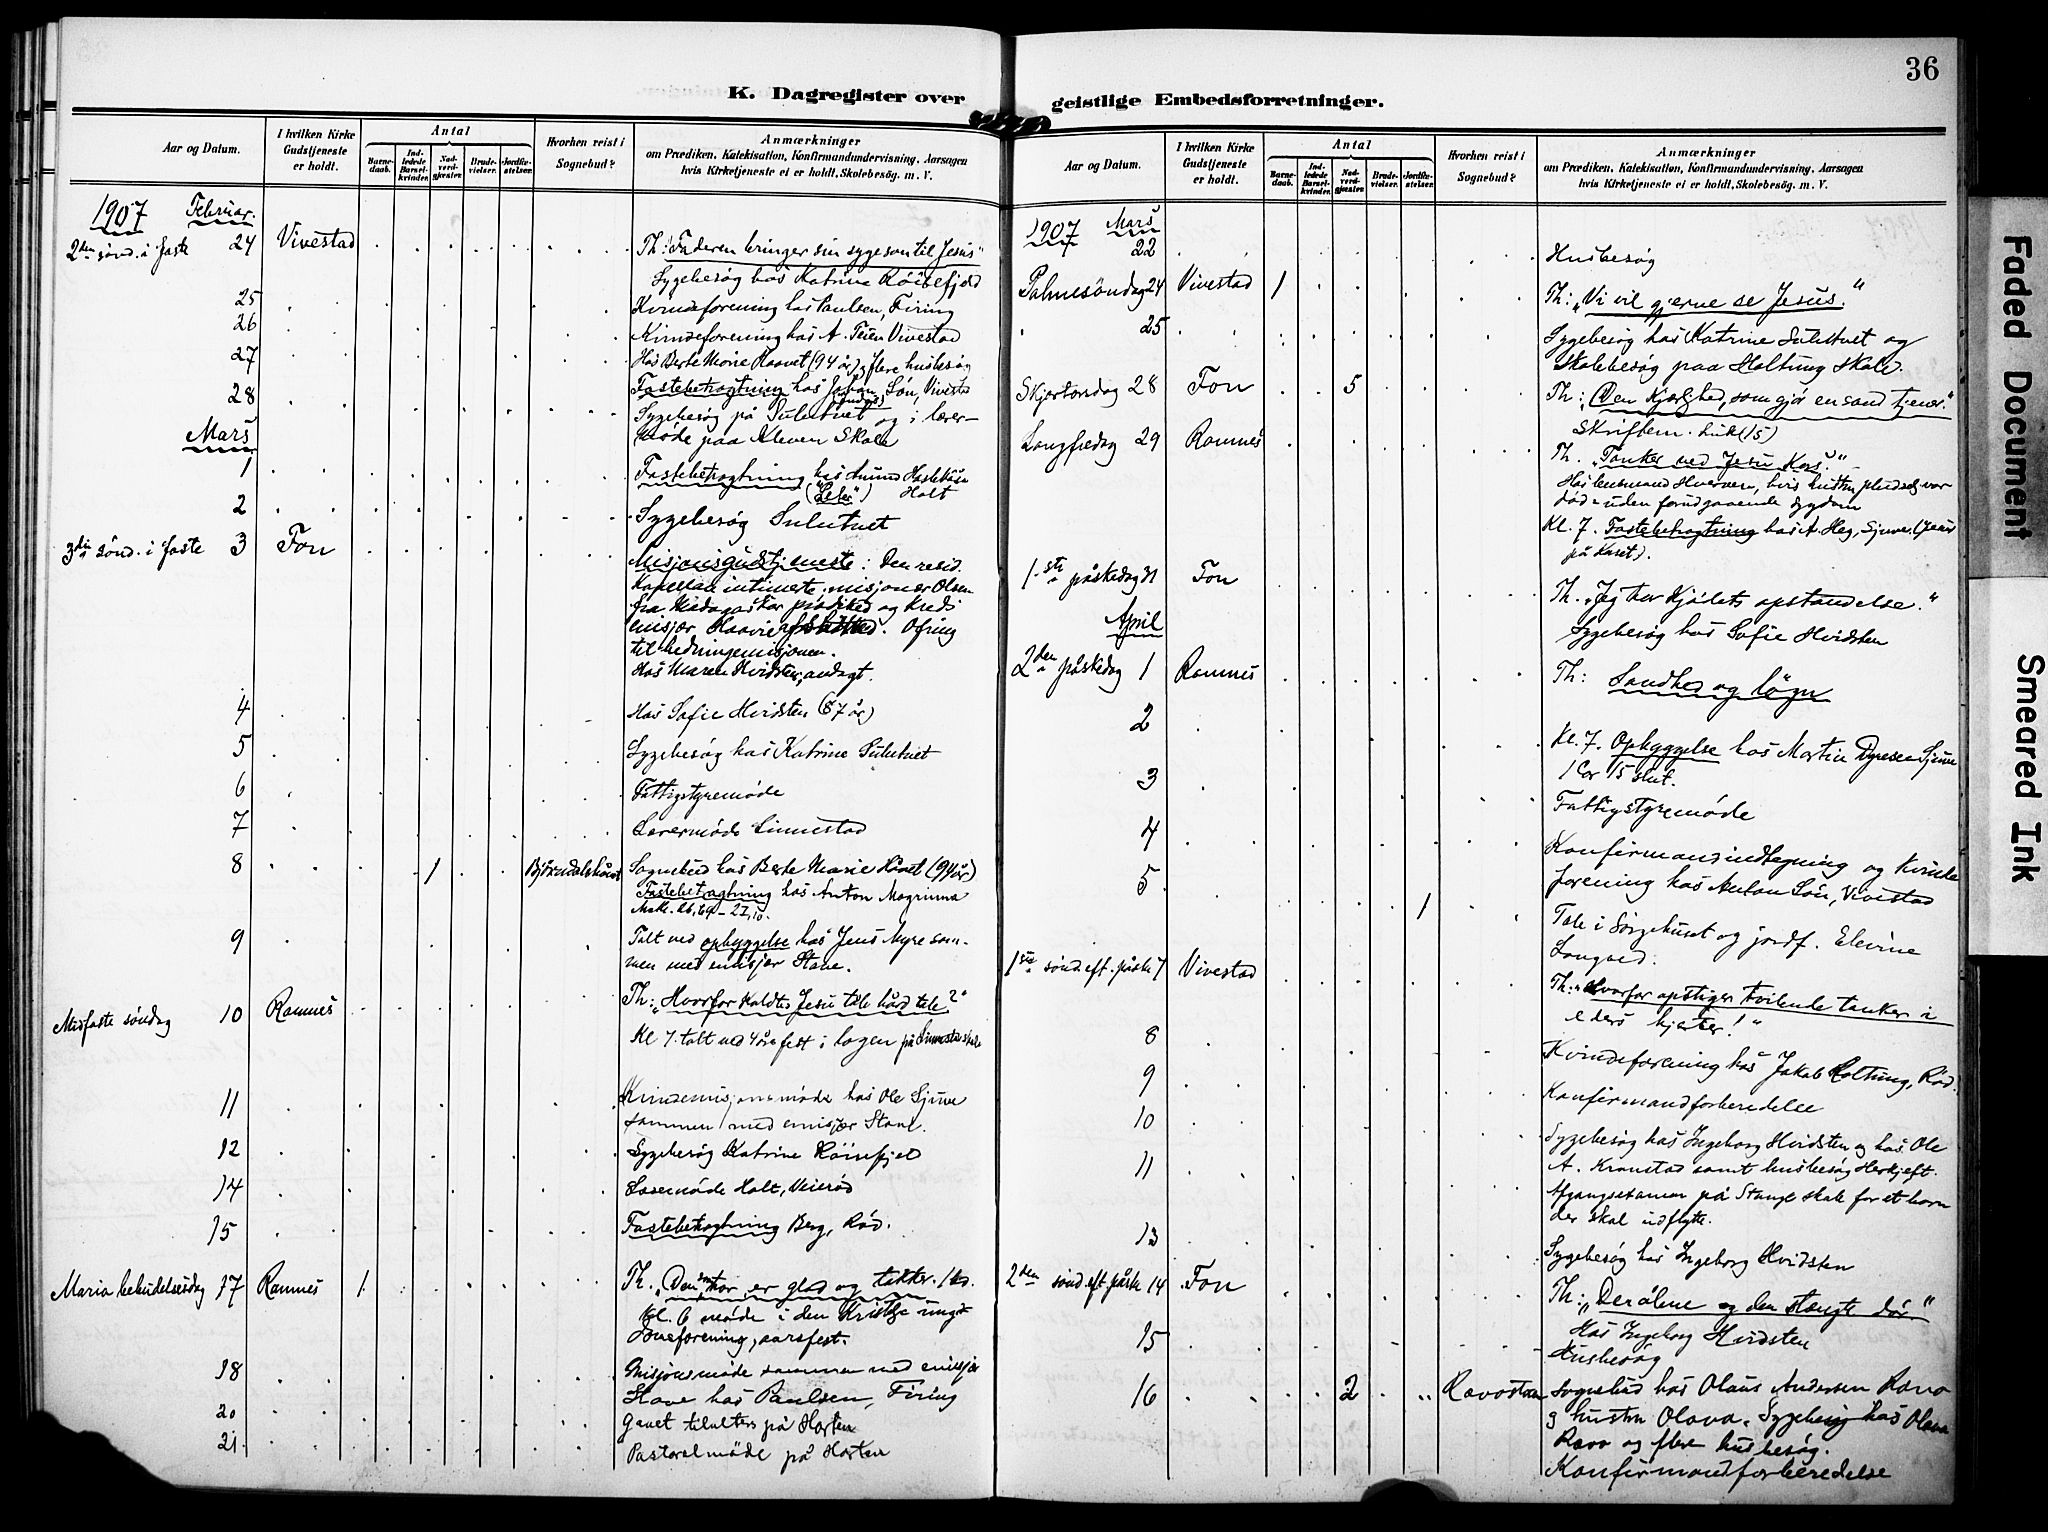 36
K. Dagregister over
Aar og Datum.
I hvilken Kirke Gudstjeneste er holdt.
Antal
Barnedaab.
Indledede Barselkvinder.
Nadverdgjester.
Brudevielser.
Jordfæstelser.
Hvorhen reist i Sognebud?
Anmærkninger
om Prædiken, Katekisation, Konfirmandundervisning, Aarsagen
hvis Kirketjeneste ei er holdt, Skolebesøg. m. V.
1907 Februar.
2den sønd. i faste 24 Vivestad Th: "Faderen bringer sin syge søn til Jesus"
Sygebesøg hos Katrine
25 Kvindeforening hos Paulsen, Firing
26 Kvindeforening hos A. Teien Vivestad
27 Hos Berte Marie (94 år) flere husbesøg
Fastebetragtning hos Johan Søn, Vivestad
28 Sygebesøg på Sulutvet og i lærer-
Mars møde paa Kleven Skole
1 Fastebetragtning hos Amund
("Peter") Holt
2 Sygebesøg Sulutvet
3die sønd. i faste 3 Fon Misjonsgudstjeneste: Den resid.
Kapellan intimerte, misjonær Olsen
fra Madagaskar prædiked og Kreds
emisjær Haavie. Ofring
til hedningemisjonen.
Hos Maren Hvidsten, andagt.
4 Hos Sofie Hvidsten (87 år)
5 Sygebesøg hos Katrine Sulutvet
6 Fattigstyremøde
7 Lærermøde Linnestad
8 1 Sognebud hos Berte Marie (94 år)
Fastebetragtning hos Anton
9 Talt ved opbyggelse hos Jens Myre sam-
men med emisjær Stane.
Midfaste søndag 10 Ramnes Th: "Hvorfor kaldtes Jesu tale hård tale?"
Kl 7 talt ved fest i logen på
11 Kindemisjonsmøde hos Ole Sjuve
sammen med emisjær Stane.
12 Sygebesøg Katrine
14 Lærermøde Holt, Veierød
15 Fastebetragtning Berg, Rød.
Maria bebudelsesdag 17 Ramnes 1 Th. "Den som tror, er glad og takker."
Kl. 6 møde i den Kristlige unge-
domsforening, aarsfest.
18 Misjonsmøde sammen med emisjær
Stane hos Paulsen, Firing
20 på Horten
21. Pastoralmøde på Horten
geistlige Embedsforretninger.
Aar og Datum.
I hvilken Kirke Gudstjeneste er holdt.
Antal
Barnedaab.
Indledede Barselkvinder.
Nadverdgjester.
Brudevielser.
Jordfæstelser.
Hvorhen reist i Sognebud?
Anmærkninger
om Prædiken, Katekisation, Konfirmandundervisning, Aarsagen
hvis Kirketjeneste ei er holdt, Skolebesøg. m. V.
1907 Mars
22 Husbesøg
Palmesøndag 24 Vivestad 1 Th: "Vi vil gjerne se Jesus."
25 Sygebesøg hos Katrine Sulutvet og
Skolebesøg paa Holtung Skole.
Skjertorsdag 28 Fon 5 Th: "Den Kjærlighed, som gjør en sand tjener."
Skriftem. Luk (15)
Langfredag 29 Ramnes Th. "Tanker ved Jesu Kors."
Hos lensmand Hvorven, hvis hustru pludselig var
død uden forudgaaende sygdom
Kl. 7. Fastebetragtning hos A. Heg, Sjuve, (Jesus
på Korset).
1.ste påskedag 31 Fon Th. "Jeg tror Kjødets opstandelse."
Sygebesøg hos Sofie Hvidsten
April
2den påskedag 1 Ramnes Th: Sandhed og løgn
2 Kl. 7. Opbyggelse hos Martin Dyresen Sjuve
1 Cor 15 slut.
3 Fattigstyremøde
4 Konfirmandindtegning og Kvinde
forening hos Anton Søn, Vivestad
5 1 Tale i Sørgehuset og jordf. Elevine
1ste sønd. eft. påske 7 Vivestad Th: "Hvorfor opstiger tvilende tanker i
eders hjerter!"
8 Kvindeforening hos Jakob Holtung, Rød.
9 Konfirmandforberedelse
10 Sygebesøg hos Ingeborg Hvidsten og hos Ole
A. Kronstad samt husbesøg
11 Afgangsexamen på Stange skole for et barn
der skal udflytte.
13 Sygebesøg hos Ingeborg Hvidsten
2den sønd. eft påske 14 Fon Th: "Den åbne og den stængte dør"
Hos Ingeborg Hvidsten
15 Husbesøg
16 2 Sognebud hos Olaus Andersen
og hustru Olava. Sygebesøg hos Olava
og flere husbesøg.
Konfirmandforberedelse
Faded Document
Smeared Ink